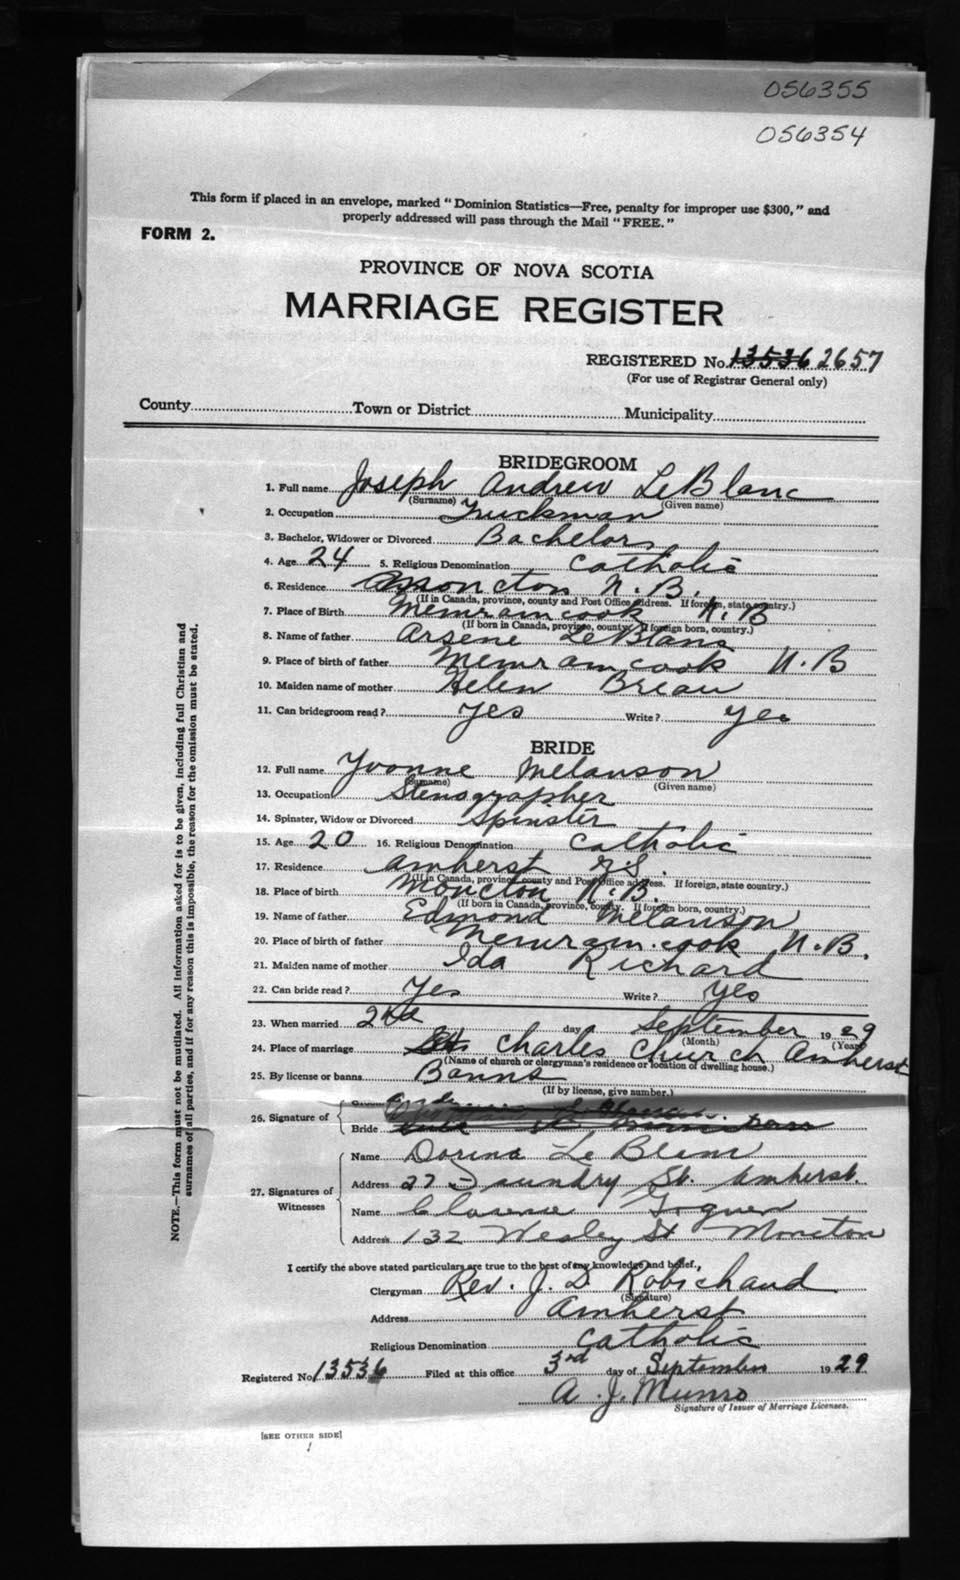 056355
056354
This form if placed in an envelope, marked "Dominion Statistics—Free, penalty for improper use $300," and
properly addressed will pass through the Mail "FREE."
FORM 2.
PROVINCE OF NOVA SCOTIA
MARRIAGE REGISTER
REGISTERED No. 13536 2657
(For use of Registrar General only)
County Town or District Municipality
BRIDEGROOM
1. Full name Joseph Andrew LeBlanc
(Surname) (Given name)
2. Occupation Truckman
3. Bachelor, Widower or Divorced Bachelor
4. Age 24 5. Religious Denomination Catholic
6. Residence Moncton N.B.
(If in Canada, province, county and Post Office address. If foreign, state country.)
7. Place of Birth Memramcook N.B
(If born in Canada, province, county. If foreign born, country.)
8. Name of father Arsene LeBlanc
9. Place of birth of father Memramcook N.B
10. Maiden name of mother Helen Breau
11. Can bridegroom read? Yes Write? Yes
BRIDE
12. Full name Yvonne Melanson
(Surname) (Given name)
13. Occupation Stenographer
14. Spinster, Widow or Divorced Spinster
15. Age 20 16. Religious Denomination Catholic
17. Residence Amherst N.S.
(If in Canada, province, county and Post Office address. If foreign, state country.)
18. Place of birth Moncton N.B.
(If born in Canada, province, county. If foreign born, country.)
19. Name of father Edmond Melanson
20. Place of birth of father Memramcook N.B.
21. Maiden name of mother Ida Richard
22. Can bride read? Yes Write? Yes
23. When married 2nd day September 1929
(Month) (Year)
24. Place of marriage St Charles Church Amherst
(Name of church or clergyman's residence or location of dwelling house.)
25. By license or banns Banns
(If by license, give number.)
26. Signature of
Bride
27. Signatures of Witnesses
Name Dorina LeBlanc
Address 27 Laundry St. Amherst.
Name Clarence Goguen
Address 132 Wesley St Moncton
I certify the above stated particulars are true to the best of my knowledge and belief.
Clergyman Rev. J. D. Robichaud
(Signature)
Address Amherst
Religious Denomination Catholic
Registered No. 13536 Filed at this office 3rd day of September 1929
A. J. Munro
Signature of Issuer of Marriage Licenses.
[SEE OTHER SIDE]
NOTE.—This form must not be mutilated. All information asked for is to be given, including full Christian and
surnames of all parties, and if for any reason this is impossible, the reason for the omission must be stated.